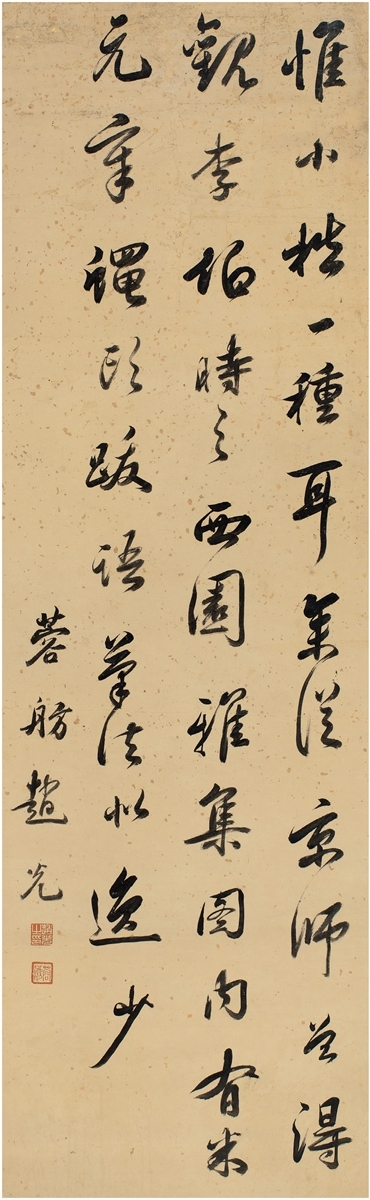 惟小楷一種耳從京師曾得
觀李伯時之西園雅集圖内有米
元章蠅頭跋語筆法似逸少
蓉舫趙光